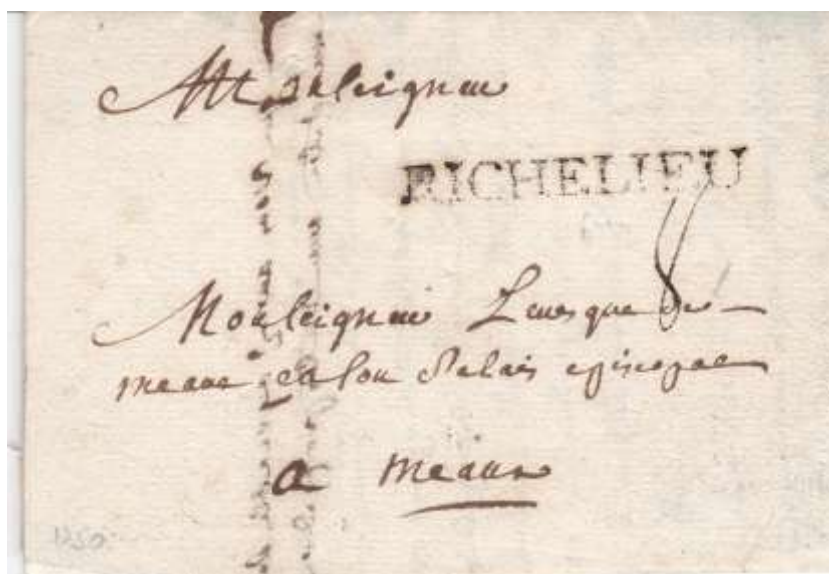 Monseigneur
RICHELIEU
8
Monseigneur Levesque de
meaux en son Palais episcopal
a meaux
1750